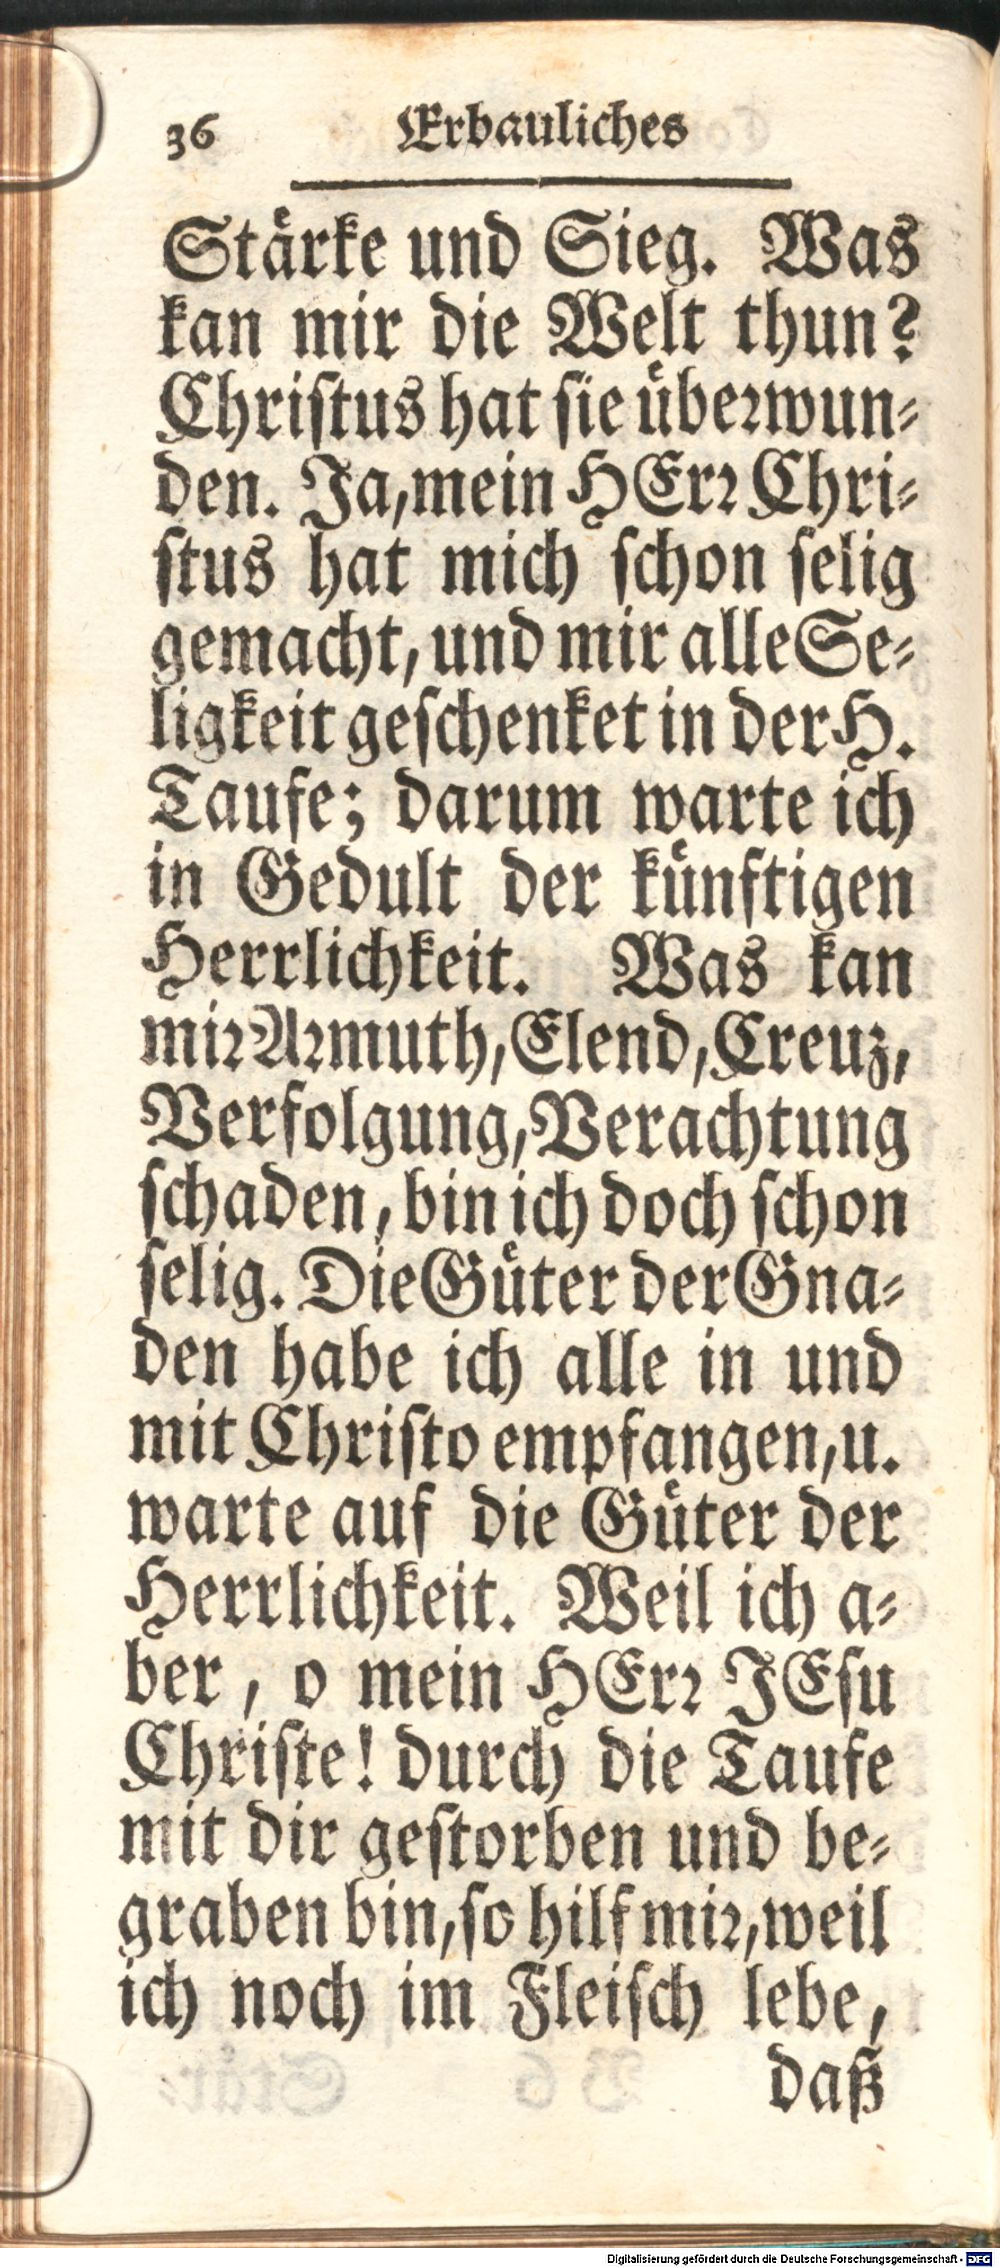 36 Erbauliches
Stärke und Sieg. Was
kan mir die Welt thun?
Christus hat sie überwun-
den. Ja, mein HErr Chri-
stus hat mich schon selig
gemacht, und mir alle Se-
ligkeit geschenket in der H.
Taufe; darum warte ich
in Gedult der künftigen
Herrlichkeit. Was kan
mir Armuth, Elend, Creuz,
Verfolgung, Verachtung
schaden, bin ich doch schon
selig. Die Güter der Gna-
den habe ich alle in und
mit Christo empfangen, u.
warte auf die Güter der
Herrlichkeit. Weil ich a-
ber, o mein HErr JEsu
Christe! durch die Taufe
mit dir gestorben und be-
graben bin, so hilf mir, weil
ich noch im Fleisch lebe,
daß
Digitalisierung gefördert durch die Deutsche Forschungsgemeinschaft - DFG